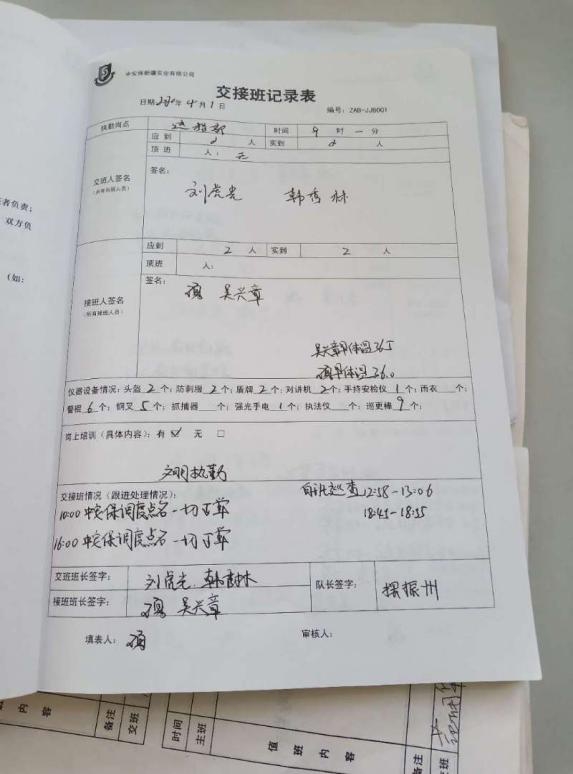 中安保新疆实业有限公司
交接班记录表
日期 2020年4月1日
编号: ZAB-JJB001
执勤岗点 时间 9时一分
应到 2人 实到 2人
顶班 人: 无
交班人签名
(所有交班人员)
签名:
刘虎光 韩秀林
应到 2人 实到 2人
顶班 人:
接班人签名
(所有接班人员)
签名:
吴兴章
吴兴章体温36.5
体温36.0
仪器设备情况: 头盔2个; 防刺服2个; 盾牌2个; 对讲机2个; 手持安检仪1个; 雨衣 个;
警棍6个; 钢叉5个; 抓捕器 个; 强光手电1个; 执法仪 个; 巡更棒9个;
岗上培训 (具体内容): 有☑ 无□
文明执勤
交接班情况 (跟进处理情况):
巡查12:58-13:06
18:45-18:55
10:00中安保调度点名一切正常
16:00中安保调度点名一切正常
交班班长签字: 刘虎光 韩秀林
队长签字: 摆振州
接班班长签字: 吴兴章
填表人:
审核人:
者负责;
双方负
(如:
内容
备注
交班
时间
主班
值班内容
备注